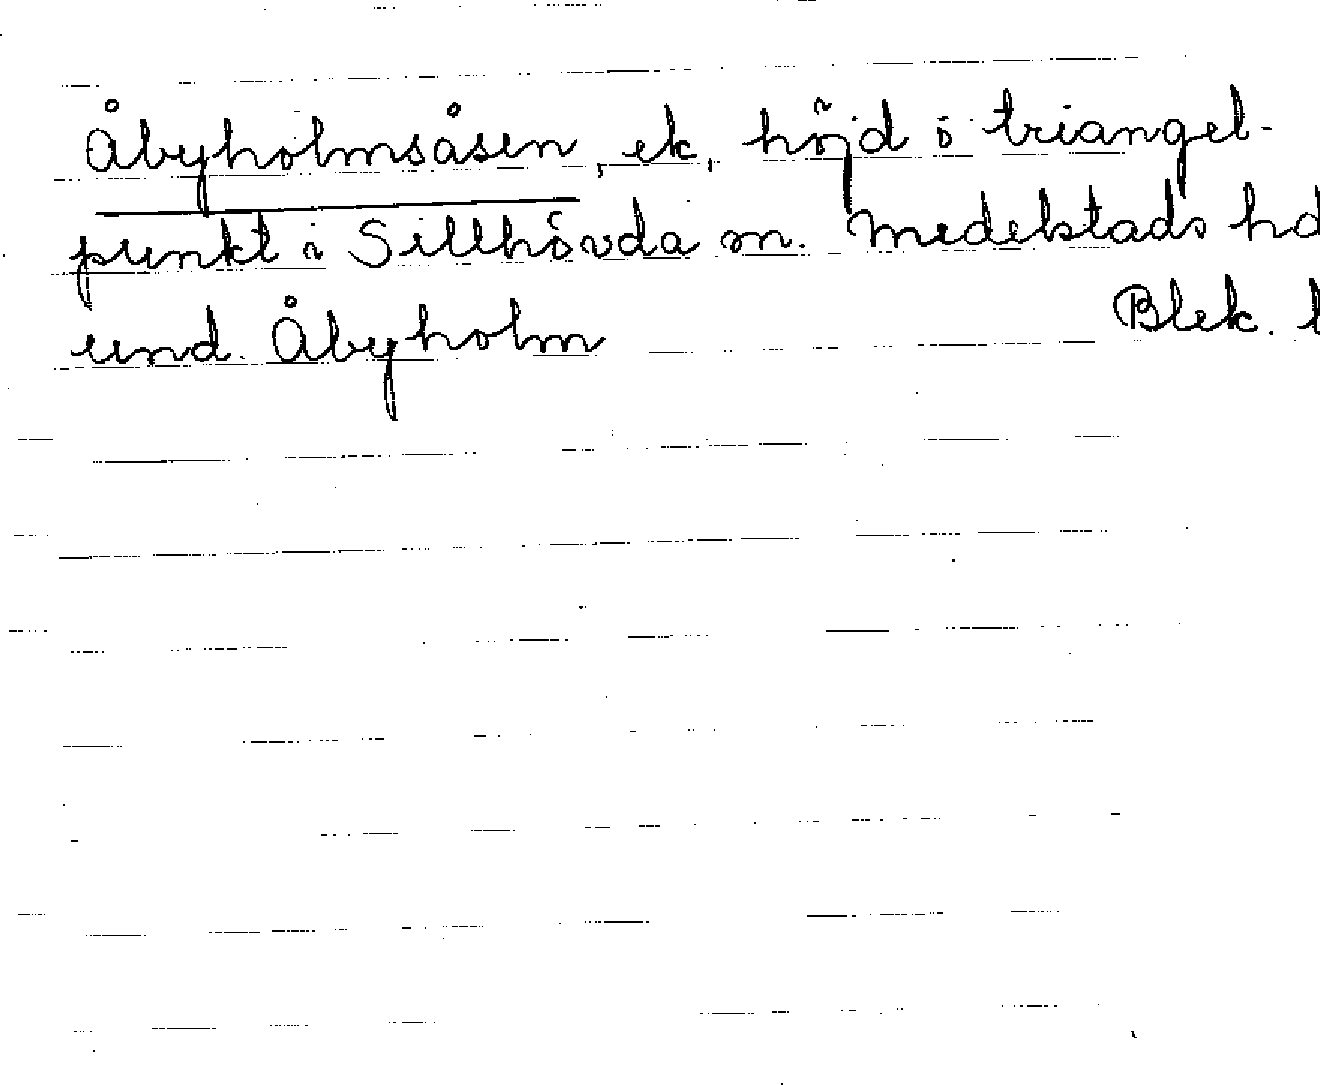 Åbyholmsåsen, ek, höjd i triangel-
punkt i Sillhövda sn. Medelstads hd
und. Åbyholm Blek. l